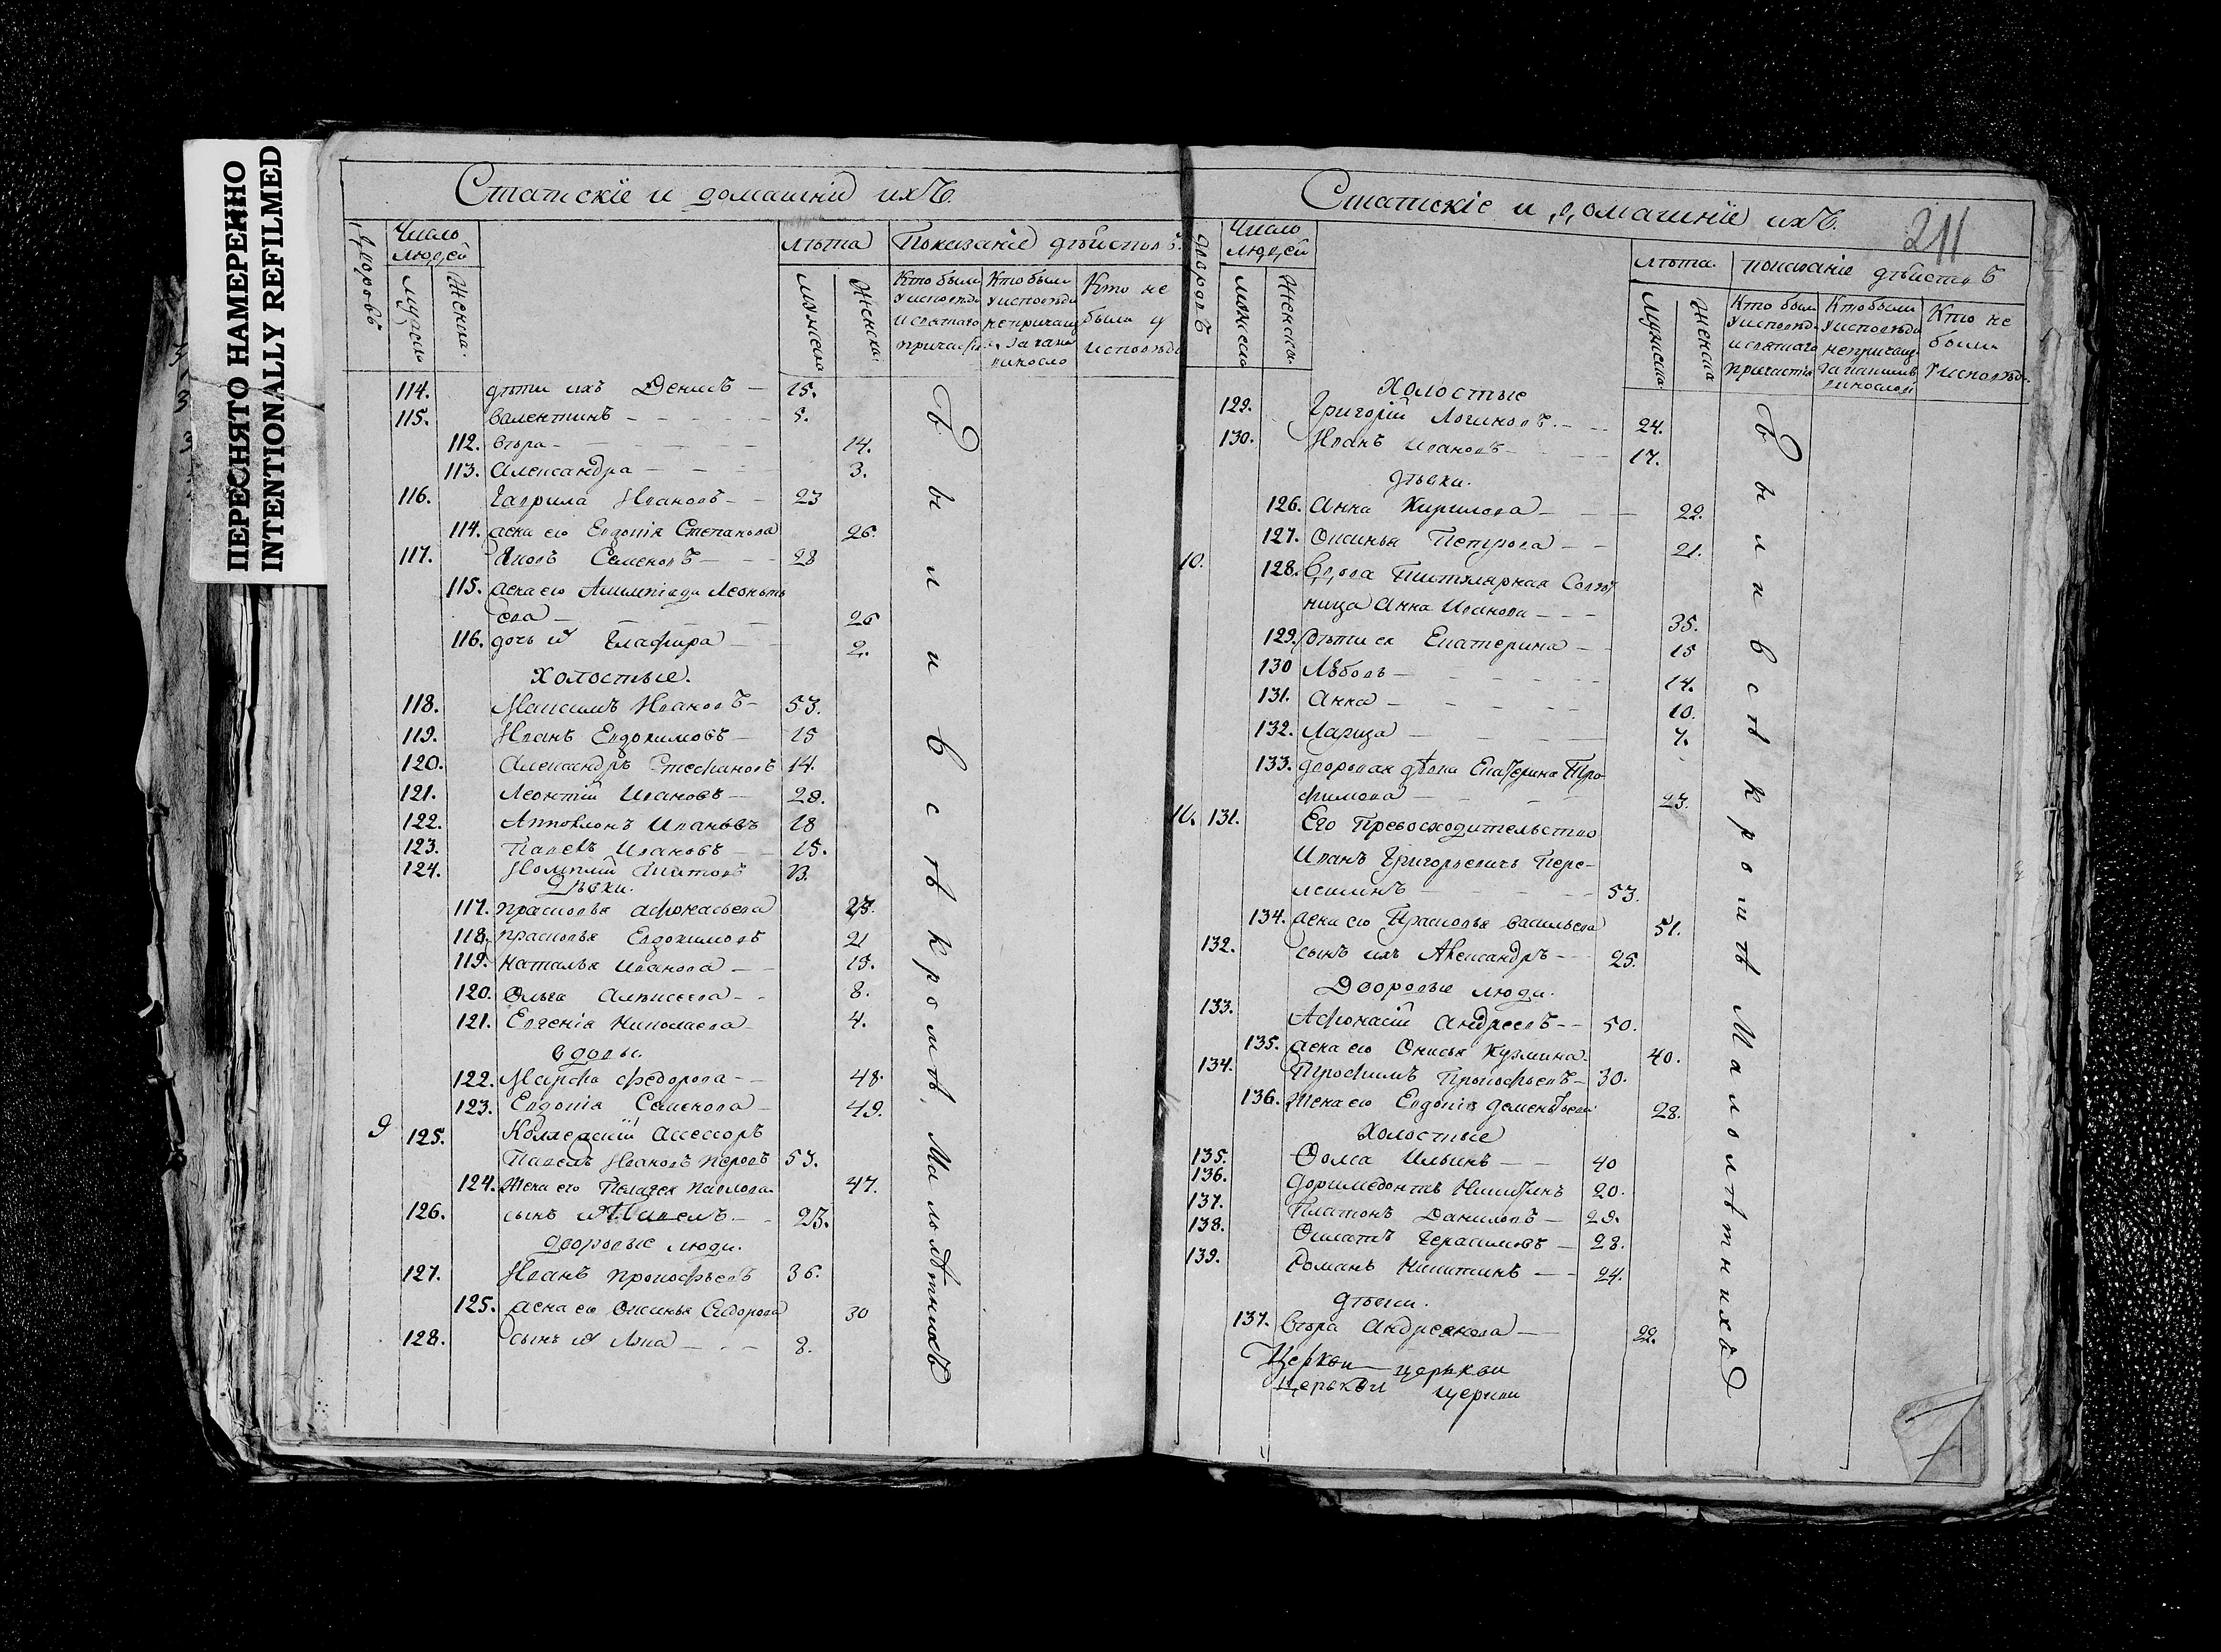 ПЕРЕСНЯТО НАМЕРЕННО
INTENTIONALLY REFILMED
Статскіе и домашніи ихъ.
Дворовъ
Число людей
мужеска
женска.
лѣта
мужеска
женска.
Показаніе дѣйствъ.
Кто были у исповѣди и святаго причастія
Кто были у исповѣди не причащ. за каким виносло
Кто не были у исповѣди
114. дѣти ихъ Денисъ — 15.
115. Валентинъ — 5.
112. Вѣра — 14.
113. Александра — 3.
116. Гаврила Ивановъ — 23
114. жена его Евдокія Степанова 26.
117. Яковъ Семеновъ — 28
115. жена его Алимпіада Леонть
ева — 26
116. дочь их Глафира — 2.
Холостые.
118. Максимъ Ивановъ — 53.
119. Иванъ Евдокимовъ — 15
120. Александръ Стефановъ 14.
121. Леонтій Ивановъ — 29.
122. Апполонъ Ивановъ 18
123. Павелъ Ивановъ — 15.
124. 13.
Дѣвки.
117. Прасковья Афонасьева 23.
118. Прасковья Евдокимовъ 21
119. Наталья Иванова — 15.
120. Ольга Алексеева — 8.
121. Евгенія Николаева — 4.
вдовы.
122. Марфа Федорова — 48.
123. Евдокія Семенова — 49.
9 125. Коллежскій Ассессоръ
Павелъ Ивановъ Перовъ 53.
124. Жена его Пелагея Павлова 47.
126. сынъ их Павелъ — 23.
дворовые люди.
127. Иванъ Прокофьевъ 36.
125. жена его Оксинья Сидорова 30
128. сынъ их Лука — 8.
Были въ с тѣ кромѣ Малолѣтныхъ
Статскіе и домашніе ихъ.
211
Дворовъ
Число людей
мужеска
женска.
лѣта.
мужеска
женска
показаніе дѣйствъ
Кто были у исповѣди и святаго причастія
Кто были у исповѣди не причащ.
Кто не были у исповѣди.
Холостые
129. Григорій Логиновъ. — 24.
130. Иванъ Ивановъ — 17.
дѣвки.
126. Анна Кирилова — 22.
127. Оксинья Петрова — 21.
10. 128. Вдова Титулярная Совѣт
ница Анна Иванова — 35.
129. дѣти ея Екатерина — 15
130 Любовь — 14.
131. Анна — 10.
132. Лариза — 7.
133. дворовая дѣвка Екатерина Тро-
фимова — 23.
11. 131. Его Превосходительство
Иванъ Григорьевичъ Пере-
лешинъ — 53.
134. жена его Прасковья Васильева 51.
132. сынъ ихъ Александръ — 25.
Дворовые люди.
133. Афонасій Андреевъ — 50.
135. жена его Онисья Кузмина 40.
134. Трофимъ Прокофьевъ — 30.
136. Жена его Евдокія Деменьтьева 28.
Холостые
135. Фома Ильинъ — 40
136. Доримедонтъ Никитинъ 20.
137. Платонъ Даниловъ — 29.
138. Филатъ Герасимовъ — 28.
139. Романъ Никитинъ — 24.
дѣвки.
137. Вѣра Андреянова — 22.
Церкви церькви
церькви церкви
Были въ с тѣ кромѣ Малолѣтнихъ